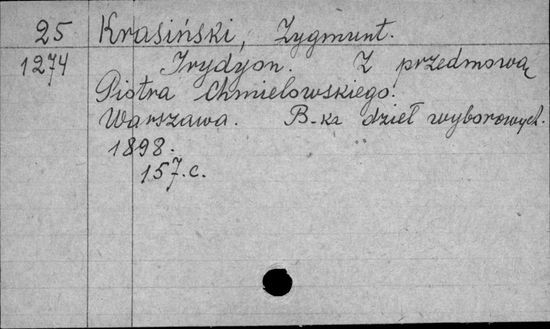 25 Krasiński, Zygmunt.
1274 Irydyon. Z przedmową
Piotra Chmielowskiego.
Warszawa. B-ka dzieł wyborowych.
1898.
157.c.